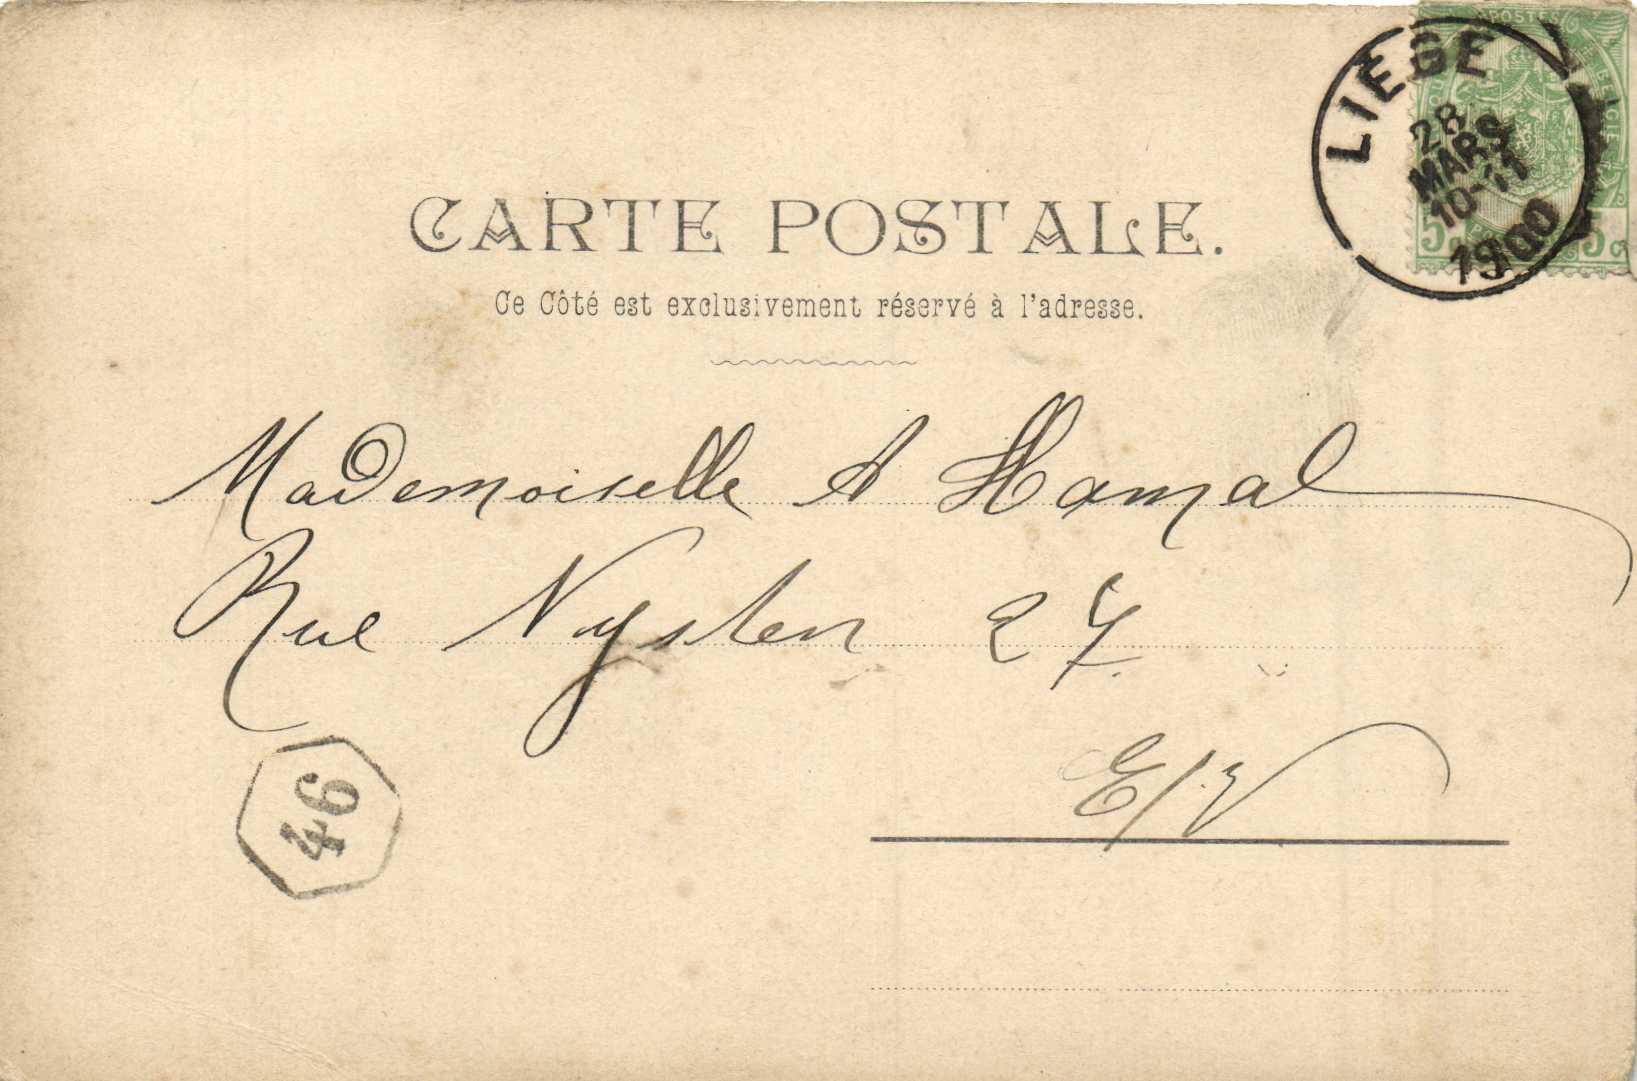 POSTES
BELGIË
5c 5c
LIEGE
28
MARS
10-11
1900
CARTE POSTALE.
Ce Côté est exclusivement réservé à l'adresse.
Mademoiselle A Hamal
Rue Nysten 27
E/V
46